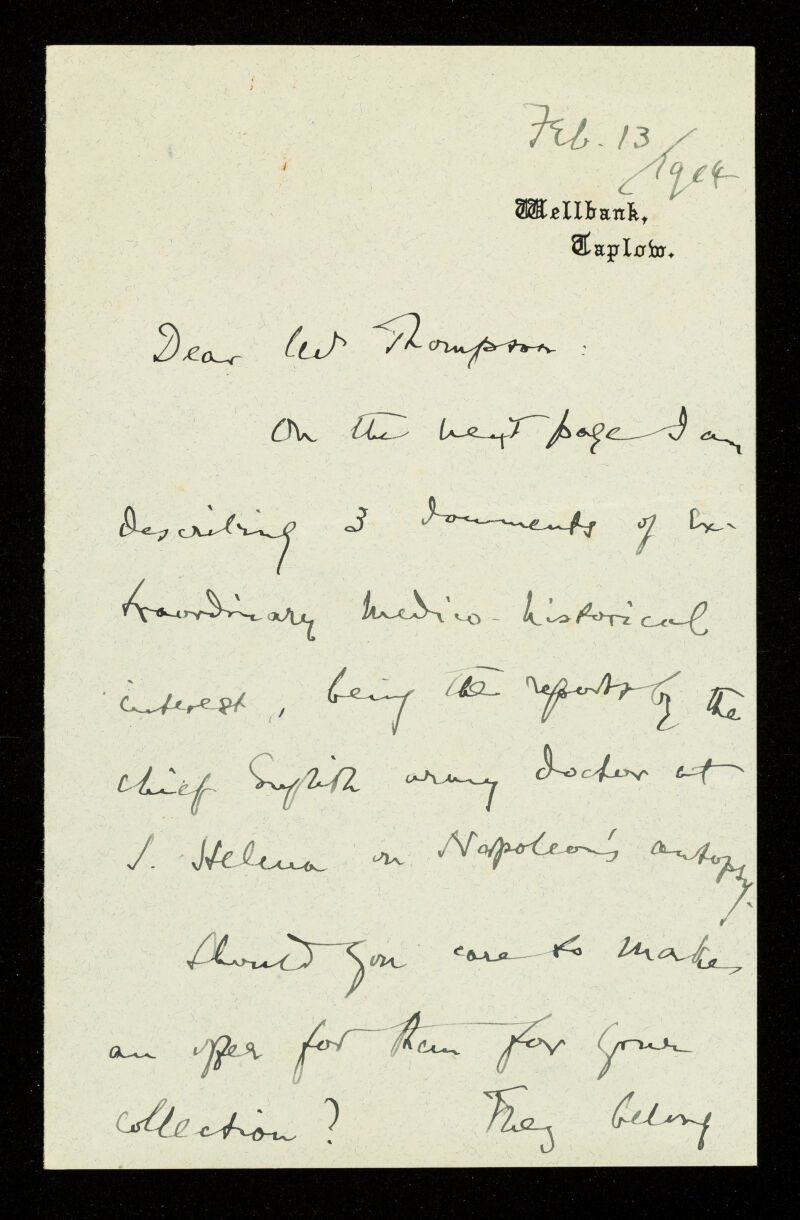 Feb. 13
/1904
Wellbank,
Taplow.
Dear Mr Thompson:
On the next page I am
describing 3 documents of ex-
traordinary medico-historical
interest, being the reports by the
chief English army doctor at
S. Helena on Napoleon's autopsy.
Should you care to make
an offer for them for your
collection? They belong